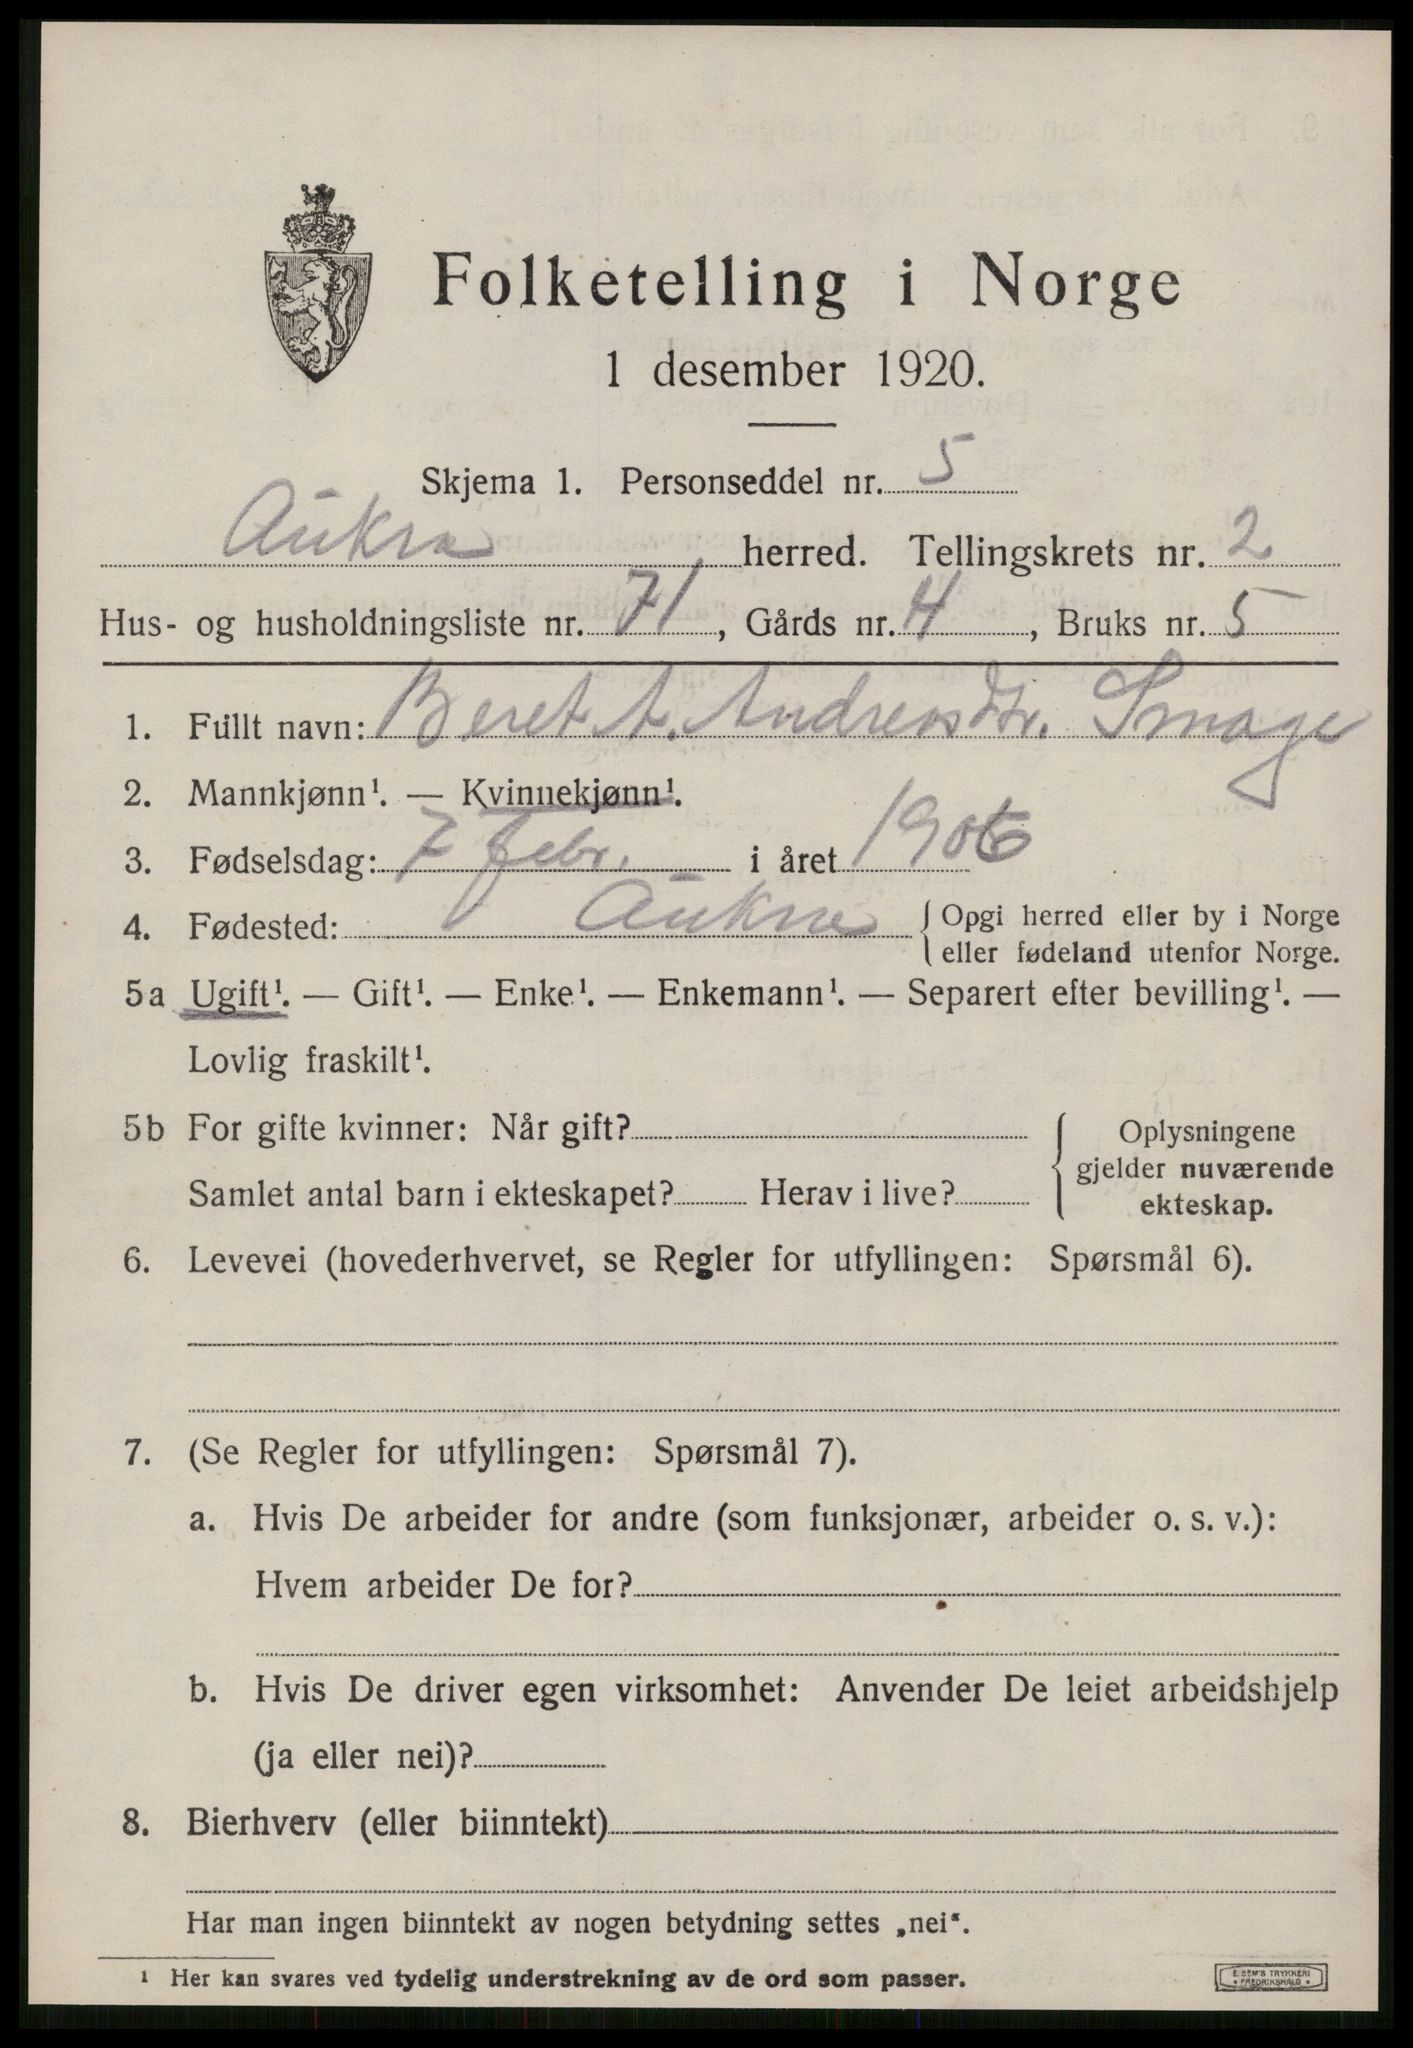 Folketelling i Norge
1 desember 1920.
Skjema 1. Personseddel nr. 5
Aukra herred. Tellingskrets nr. 2
Hus- og husholdningsliste nr. 71, Gårds nr. 4, Bruks nr. 5
1. Fullt navn: Beret A. Andreasdtr. Smage
2. Mannkjønn¹. — Kvinnekjønn¹.
3. Fødselsdag: 7 febr. i året 1906
4. Fødested: Aukra { Opgi herred eller by i Norge
eller fødeland utenfor Norge.
5a Ugift¹. — Gift¹. — Enke¹. — Enkemann¹. — Separert efter bevilling¹. —
Lovlig fraskilt¹.
5b For gifte kvinner: Når gift?
Samlet antal barn i ekteskapet? Herav i live?
{ Oplysningene
gjelder nuværende
ekteskap.
6. Levevei (hovederhvervet, se Regler for utfyllingen: Spørsmål 6).
7. (Se Regler for utfyllingen: Spørsmål 7).
a. Hvis De arbeider for andre (som funksjonær, arbeider o. s. v.):
Hvem arbeider De for?
b. Hvis De driver egen virksomhet: Anvender De leiet arbeidshjelp
(ja eller nei)?
8. Bierhverv (eller biinntekt)
Har man ingen biinntekt av nogen betydning settes „nei“.
¹ Her kan svares ved tydelig understrekning av de ord som passer.
E. SEM'S TRYKKERI
• FREDRIKSHALD •